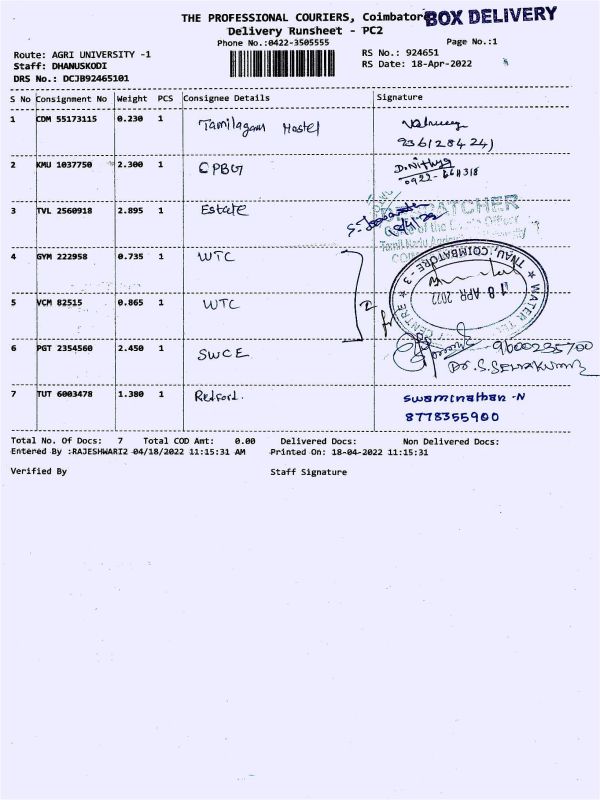 THE PROFESSIONAL COURIERS, Coimbatore
BOX DELIVERY
Delivery Runsheet - PC2
Phone No.:0422-3505555
Page No.:1
Route: AGRI UNIVERSITY -1
RS No.: 924651
Staff: DHANUSKODI
RS Date: 18-Apr-2022
DRS No.: DCJB92465101
S No Consignment No Weight PCS Consignee Details Signature
1 CDM 55173115 0.230 1 Tamilagam Hostel
2 KMU 1037750 2.300 1 CPBG D.Nithya
3 TVL 2560918 2.895 1 Estate
DESPATCHER
Office of the Estate Officer
Tamil Nadu
4 GYM 222958 0.735 1 WTC
TNAU, COIMBATORE - 3
18 APR 2022
WATER CENTRE
5 VCM 82515 0.865 1 WTC
6 PGT 2354560 2.450 1 SWCE 9600235700
7 TUT 6003478 1.380 1 Redford. Swaminathan -N
8778355900
Total No. Of Docs: 7 Total COD Amt: 0.00 Delivered Docs: Non Delivered Docs:
Entered By :RAJESHWARI2 04/18/2022 11:15:31 AM Printed On: 18-04-2022 11:15:31
Verified By Staff Signature